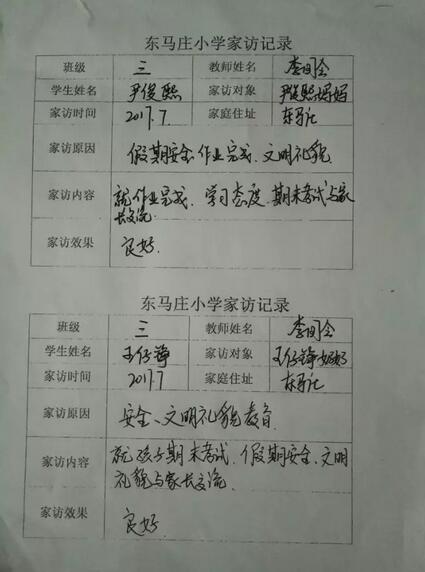 东马庄小学家访记录
班级 三 教师姓名
学生姓名 尹俊熙 家访对象 尹俊熙妈妈
家访时间 2017.7 家庭住址 东马庄
家访原因 假期安全 作业完成、文明礼貌
家访内容 就作业完成、学习态度、期末考试与家
长交流
家访效果 良好.
东马庄小学家访记录
班级 三 教师姓名
学生姓名 家访对象
家访时间 2017.7 家庭住址 东马庄
家访原因 安全、文明礼貌教育.
家访内容 就孩子期末考试、假期安全、文明
礼貌与家长交流.
家访效果 良好.